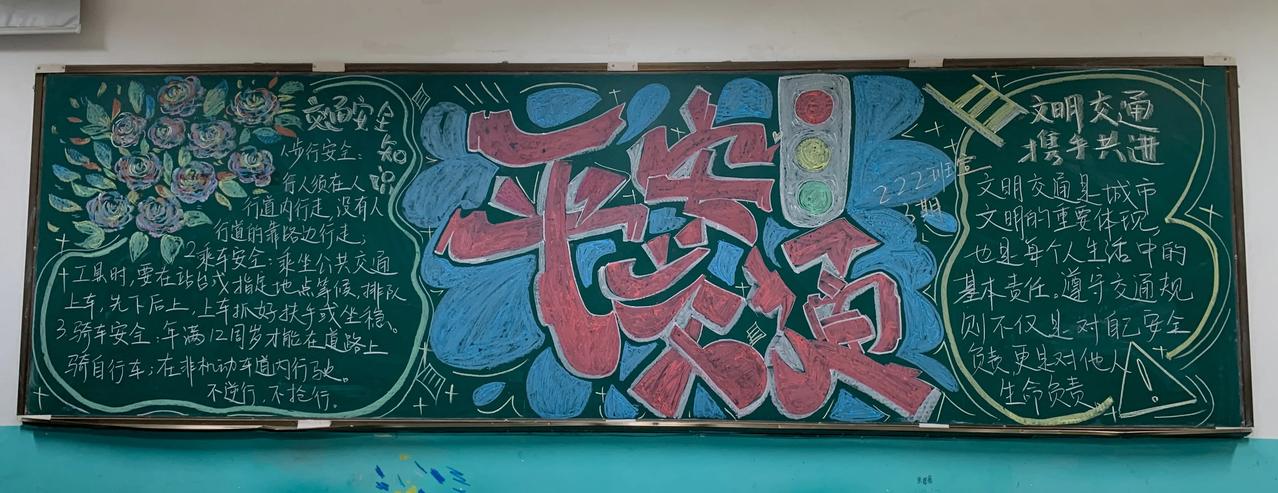 交通安全知识
1步行安全：
行人须在人
行道内行走，没有人
行道的靠路边行走；
2乘车安全：乘坐公共交通
工具时，要在站台或指定地点等候，排队
上车，先下后上，上车抓好扶手或坐稳。
3.骑车安全：年满12周岁才能在道路上
骑自行车；在非机动车道内行驶。
不逆行，不抢行。
平安
222班宣
文明交通
携手共进
文明交通是城市
文明的重要体现
也是每个人生活中的
基本责任。遵守交通规
则不仅是对自己安全
负责更是对他人
生命负责